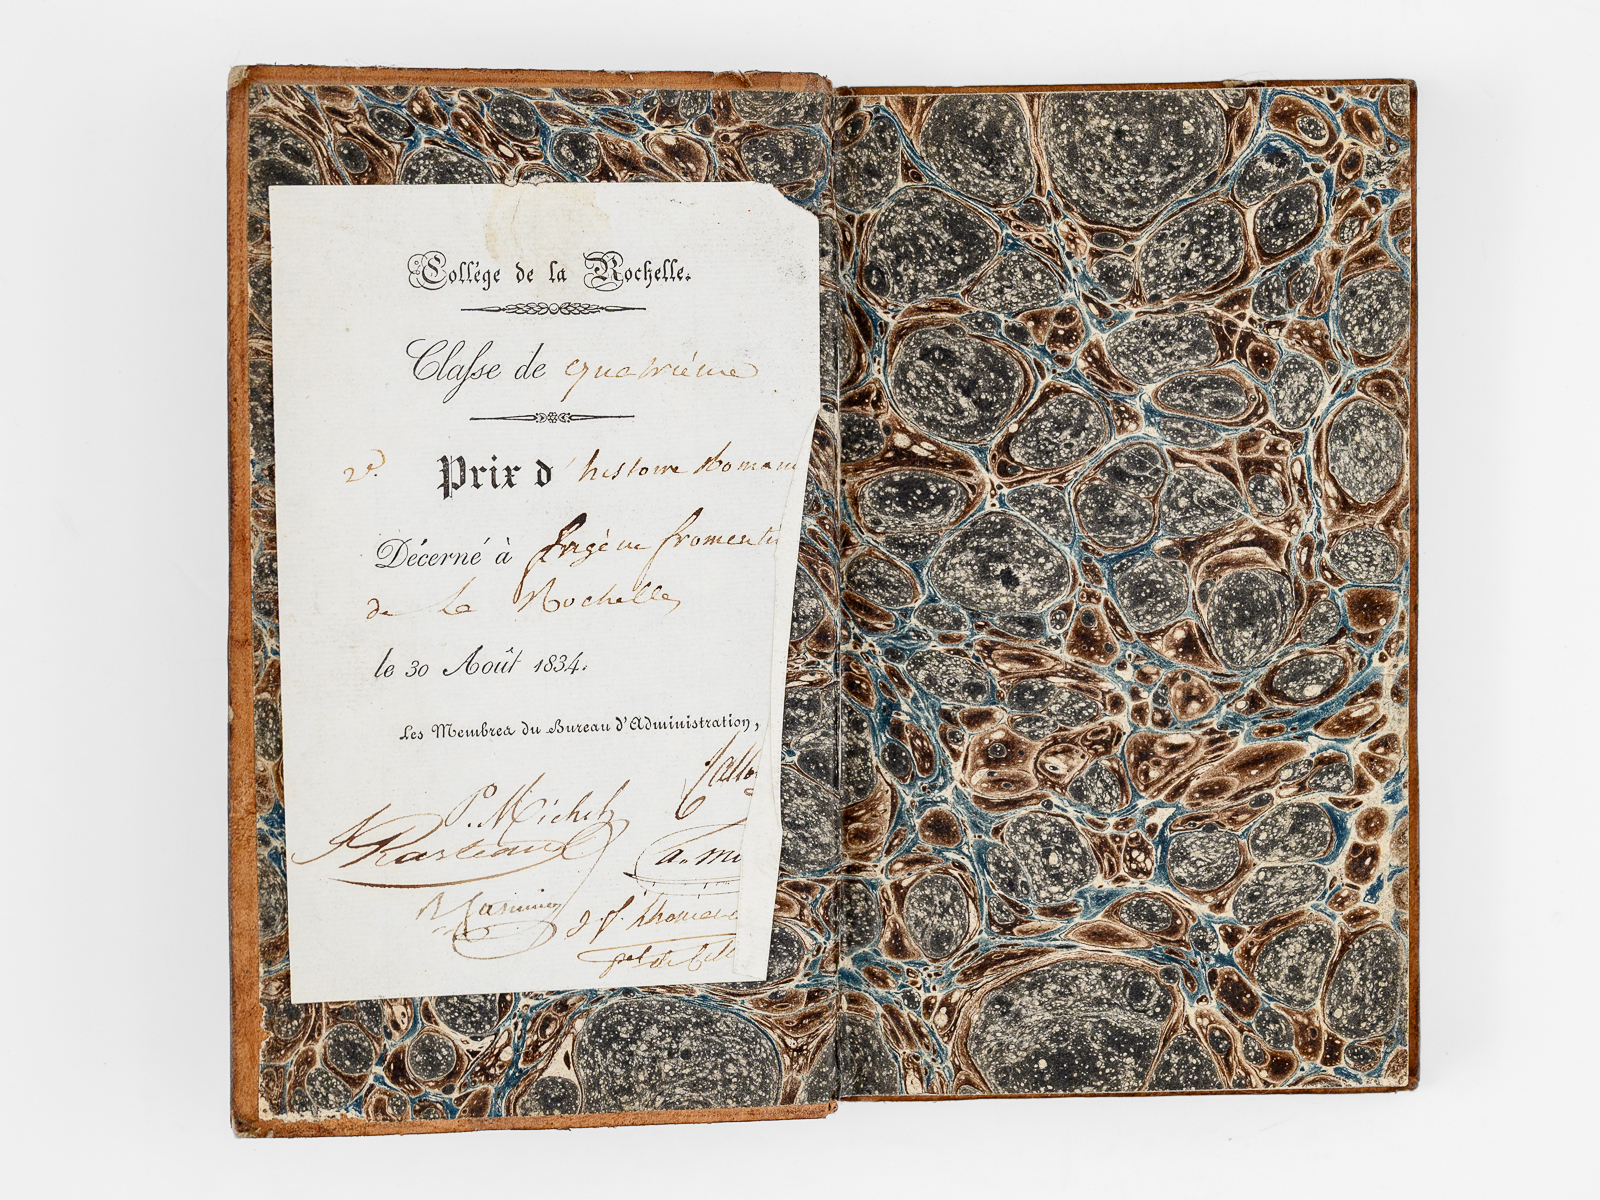 Collège de la Rochelle.
Classe de quatrième
2e. Prix d'histoire Romain
Décerné à Eugène fromentin
de La Rochelle
le 30 Août 1834.
Les Membres du Bureau d'Administration,
Callo
P. Michel
Rasteau
a. mi